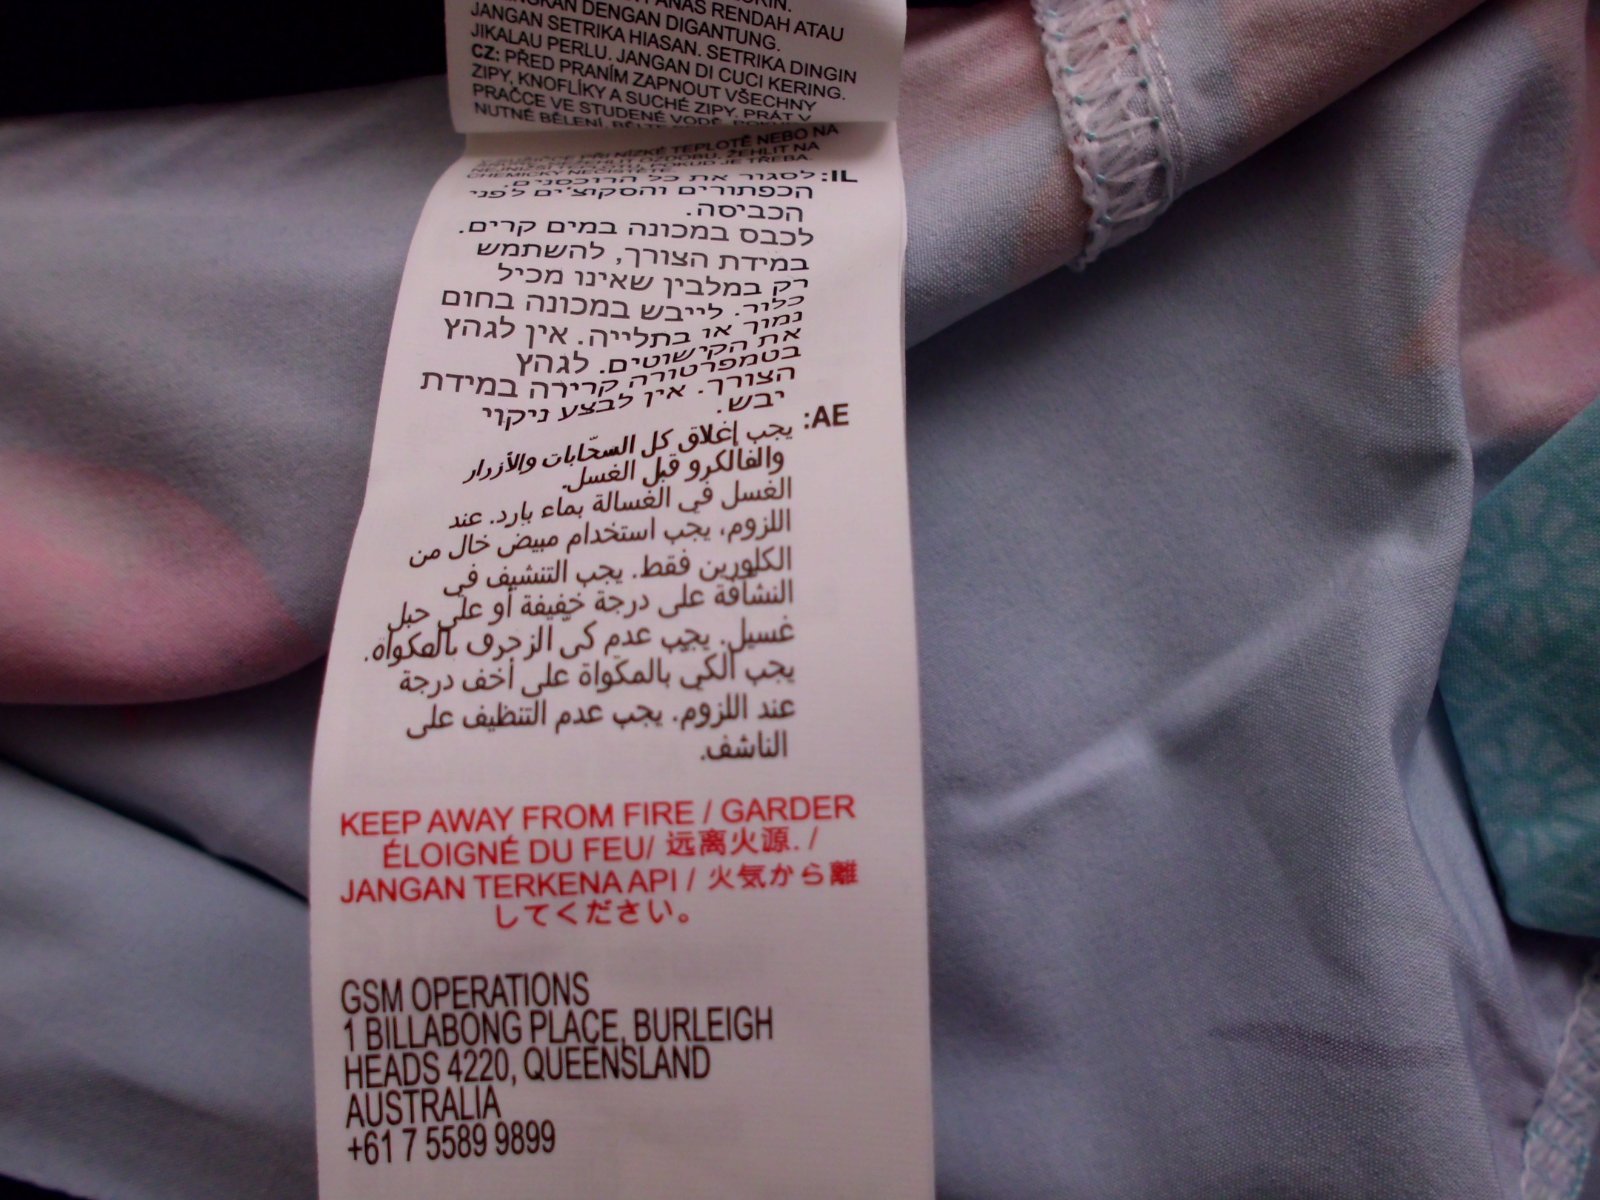 PANAS RENDAH ATAU
DENGAN DIGANTUNG.
JANGAN SETRIKA HIASAN. SETRIKA DINGIN
JIKALAU PERLU. JANGAN DI CUCI KERING.
CZ: PŘED PRANÍM ZAPNOUT VŠECHNY
ZIPY, KNOFLÍKY A SUCHÉ ZIPY. PRÁT V
PRAČCE VE STUDENÉ VODĚ.
NUTNÉ BĚLENÍ,
PŘI NÍZKÉ TEPLOTĚ NEBO NA
OZDOBU. ŽEHLIT NA
POKUD JE TŘEBA.
CHEMICKY NEČISTĚTE.
IL: לסגור את כל הרוכסנים,
הכפתורים והסקוצ'ים לפני
הכביסה.
לכבס במכונה במים קרים.
במידת הצורך, להשתמש
רק במלבין שאינו מכיל
כלור. לייבש במכונה בחום
נמוך או בתלייה. אין לגהץ
את הקישוטים. לגהץ
בטמפרטורה קרירה במידת
הצורך. אין לבצע ניקוי
יבש.
AE: يجب إغلاق كل السحّابات والأزرار
والفالكرو قبل الغسل.
الغسل في الغسالة بماء بارد. عند
اللزوم، يجب استخدام مبيض خال من
الكلورين فقط. يجب التنشيف في
النشافة على درجة خفيفة أو على حبل
غسيل. يجب عدم كي الزخرف بالمكواة.
يجب الكي بالمكواة على أخف درجة
عند اللزوم. يجب عدم التنظيف على
الناشف.
KEEP AWAY FROM FIRE / GARDER
ÉLOIGNÉ DU FEU/ 远离火源. /
JANGAN TERKENA API / 火気から離
してください。
GSM OPERATIONS
1 BILLABONG PLACE, BURLEIGH
HEADS 4220, QUEENSLAND
AUSTRALIA
+61 7 5589 9899